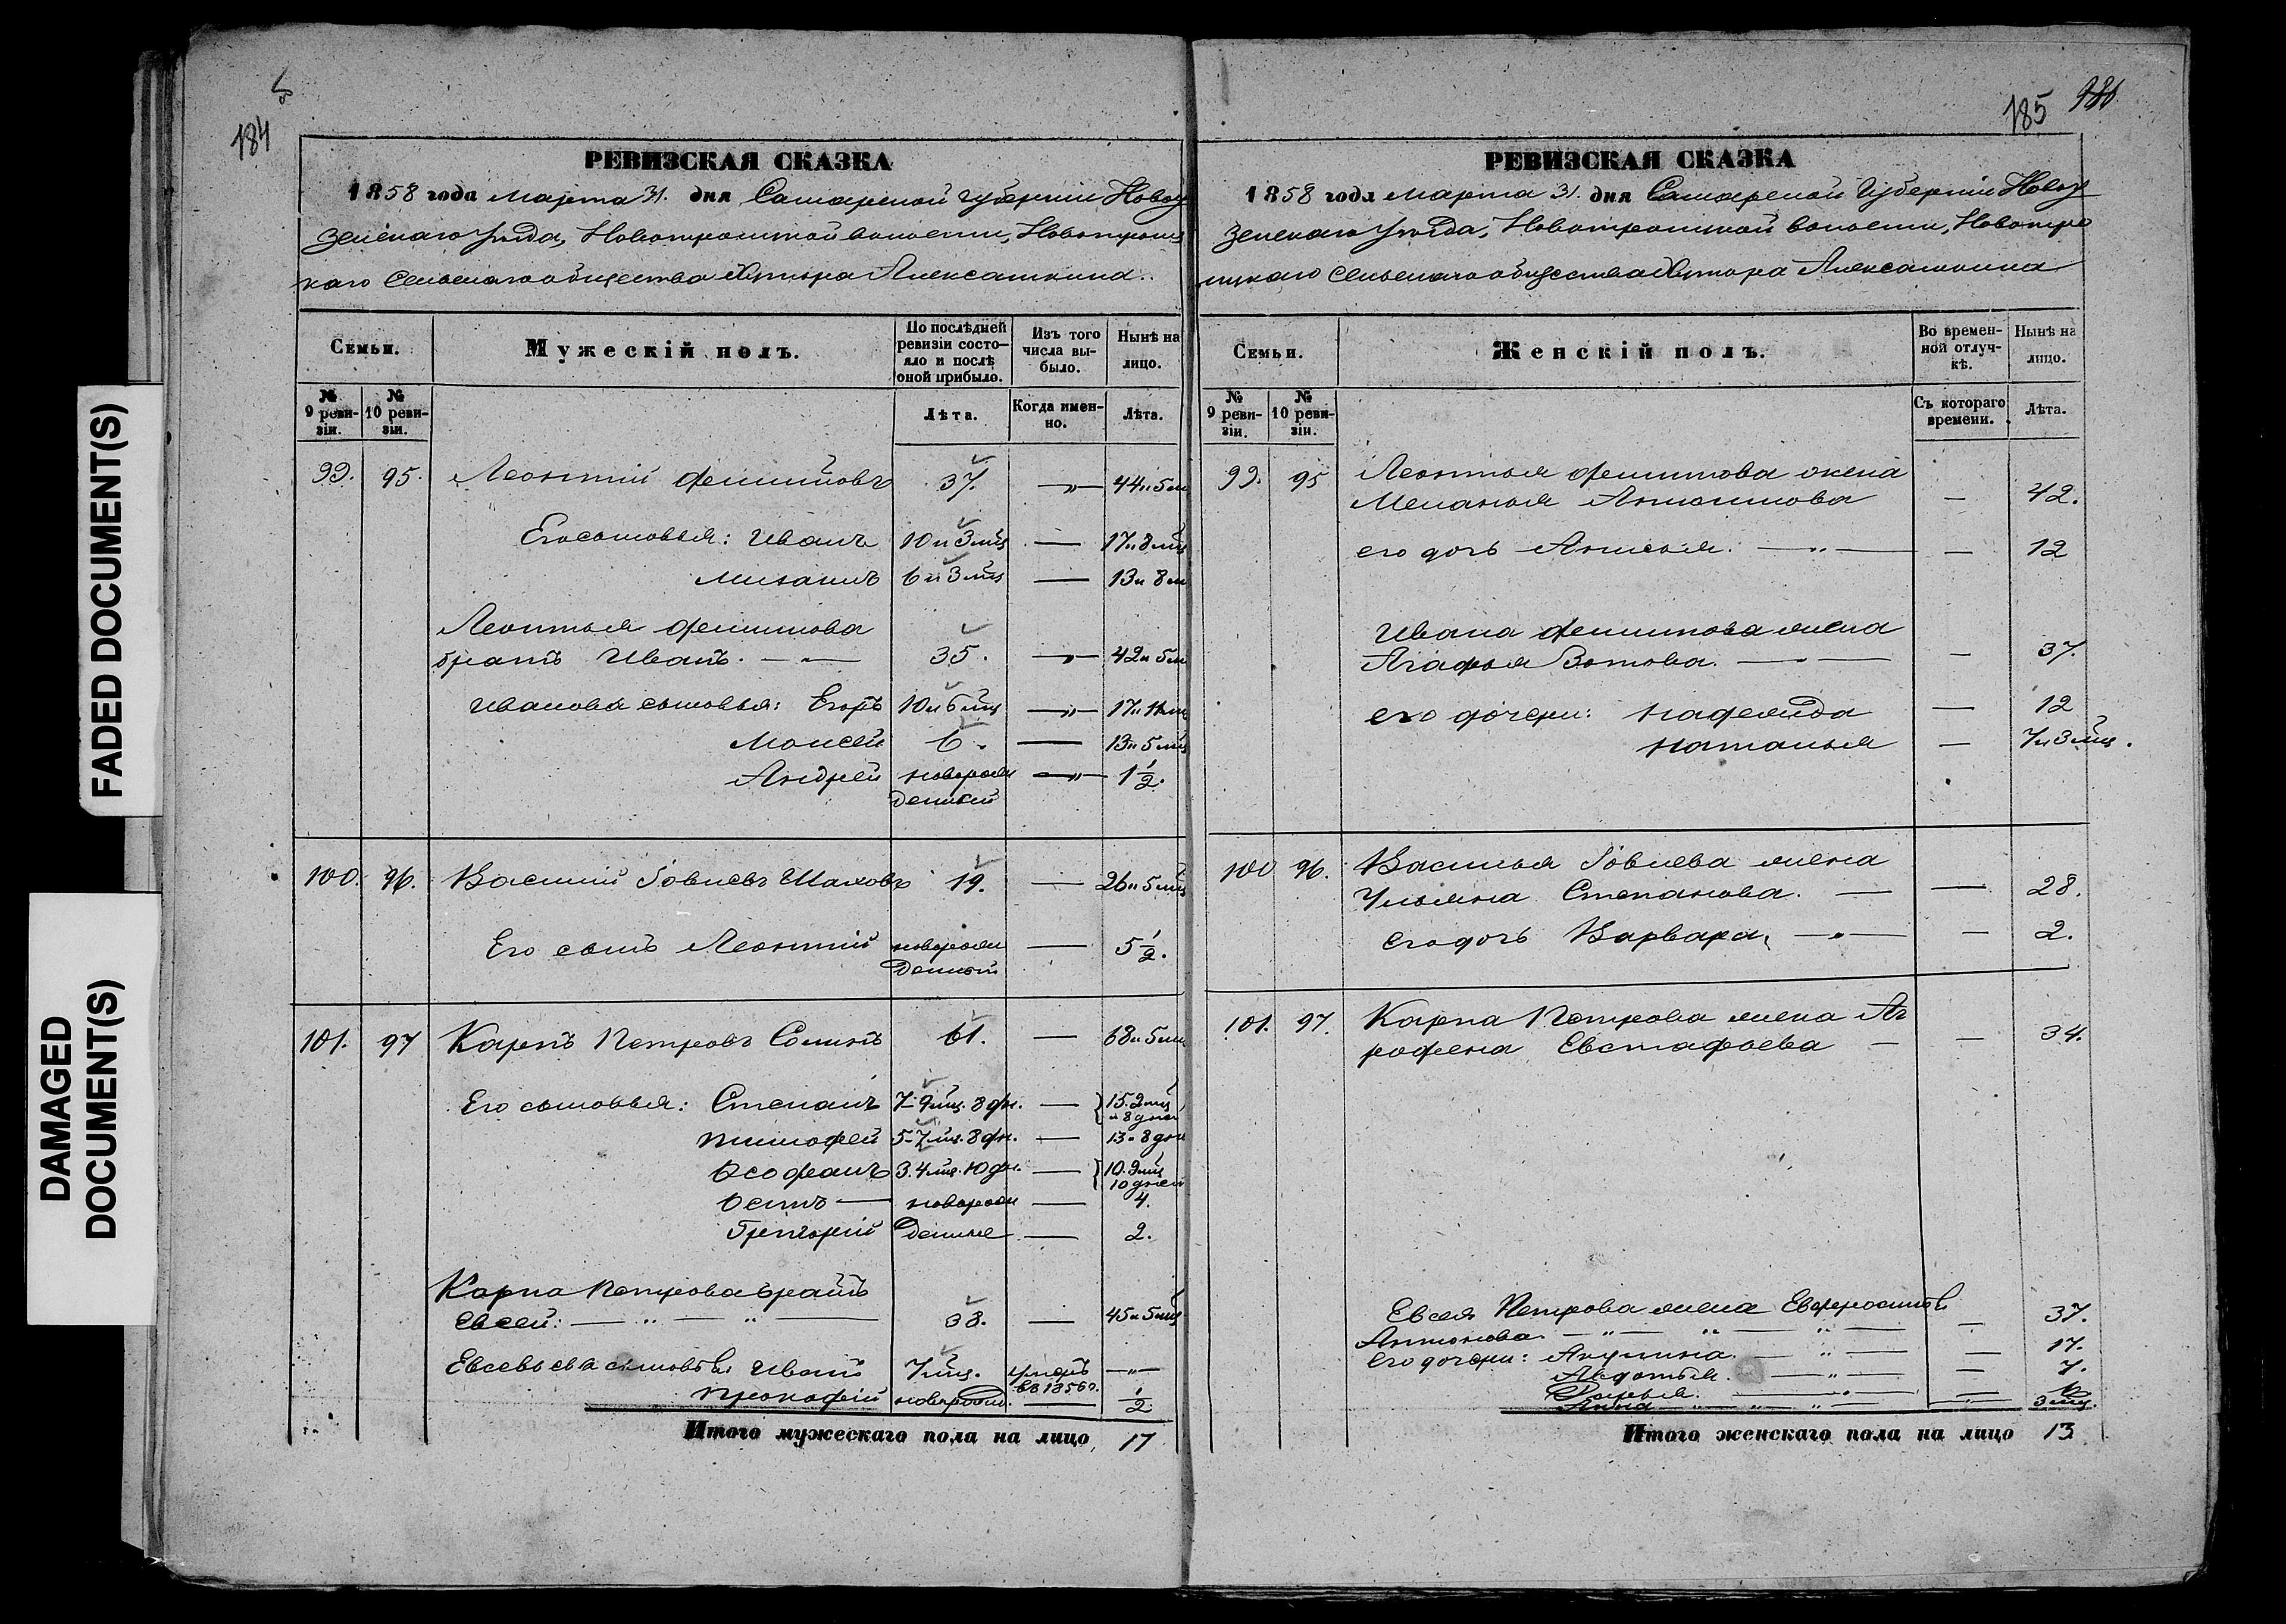 FADED DOCUMENT(S)
DAMAGED
DOCUMENT(S)
184
РЕВИЗСКАЯ СКАЗКА
1858 года Марта 31. дня Самарской Губернии Новоу
зенскаго Уезда, Новотроицкой волости, Новотроиц
каго Сельскаго общества Хутора Алексашкина.
Семьи.
Мужескій полъ.
По послѣдней
ревизіи состо-
яло и послѣ
оной прибыло.
Изъ того
числа вы-
было.
Нынѣ на
лицо.
№
9 реви-
зіи.
№
10 реви-
зіи.
Лѣта.
Когда имен-
но.
Лѣта.
99. 95. Леонтій 37. — „ — 44 и 5 м
Его сыновья: Иванъ 10 и 3 мѣц — 17 и 8 мѣц
Михаилъ 6 и 3 мѣц — 13 и 8 м
Леонтья
братъ Иванъ. — „ — 35. — „ — 42 и 5 м
Иванова сыновья: Егоръ 10 и 6 мѣц — „ — 17 и 11 м
Моисей 6. — 13 и 5 мѣц
Андрей новорож — „ — 1 1/2.
денный
100. 96. Василій Іовлевъ Шаховъ 19. — 26 и 5 мѣц
Его сынъ Леонтій новорож — 5 1/2.
денный
101. 97 Карпъ Петровъ Соминъ 61. — 68 и 5 м
Его сыновья: Степанъ 7-9 мѣц. 8 дн. — 15. 2 мѣц
и 8 дней
Тимофей 5-7 мѣц. 8 дн. — 13 - 8 дн
Ѳеофанъ 3. 4 мѣц. 10 дн. — 10. 9 мѣц
10 дней
Осипъ — новорож — 4.
Григорій денные — 2.
Карпа Петрова братъ
Евсей: — „ — „ — 38. — 45 и 5 мѣц
Евсевьева сыновья: Иванъ 7 мѣц. умеръ — „ —
въ 1856 г.
Прокофій новорожд. — 1/2
Итого мужескаго пола на лицо 17
185
РЕВИЗСКАЯ СКАЗКА
1858 года Марта 31. дня Самарской Губерніи Новоу
зенскаго Уезда, Новотроицкой волости, Новотро
ицкаго Сельскаго общества Хутора Алексашкина
Семьи.
Женскій полъ.
Во времен-
ной отлуч-
кѣ.
Нынѣ на
лицо.
№
9 реви-
зіи.
№
10 реви-
зіи.
Съ котораго
времени.
Лѣта.
99. 95 Леонтья жена
Меланья — 42.
его дочь Анисья. — „ — — 12
Ивана жена
Агафья Зотова. — „ — — 37.
его дочери: Надежда — 12
Наталья — 7 и 3 мѣц.
100 96. Василья Іовлева жена
Ульяна Степанова. — — 28.
его дочь Варвара, — „ — — 2.
101. 97. Карпа Петрова жена Аг
рофена Евстафьева — — 34.
Евсея Петрова жена Евфросинья
Антонова — „ — „ — „ — — 37.
Его дочери: Акулина — „ — — 17.
Авдотья. — „ — — 7.
Дарья. — „ — —
Анна — „ — „ — „ — — „ — 3 мѣц.
Итого женскаго пола на лицо 13